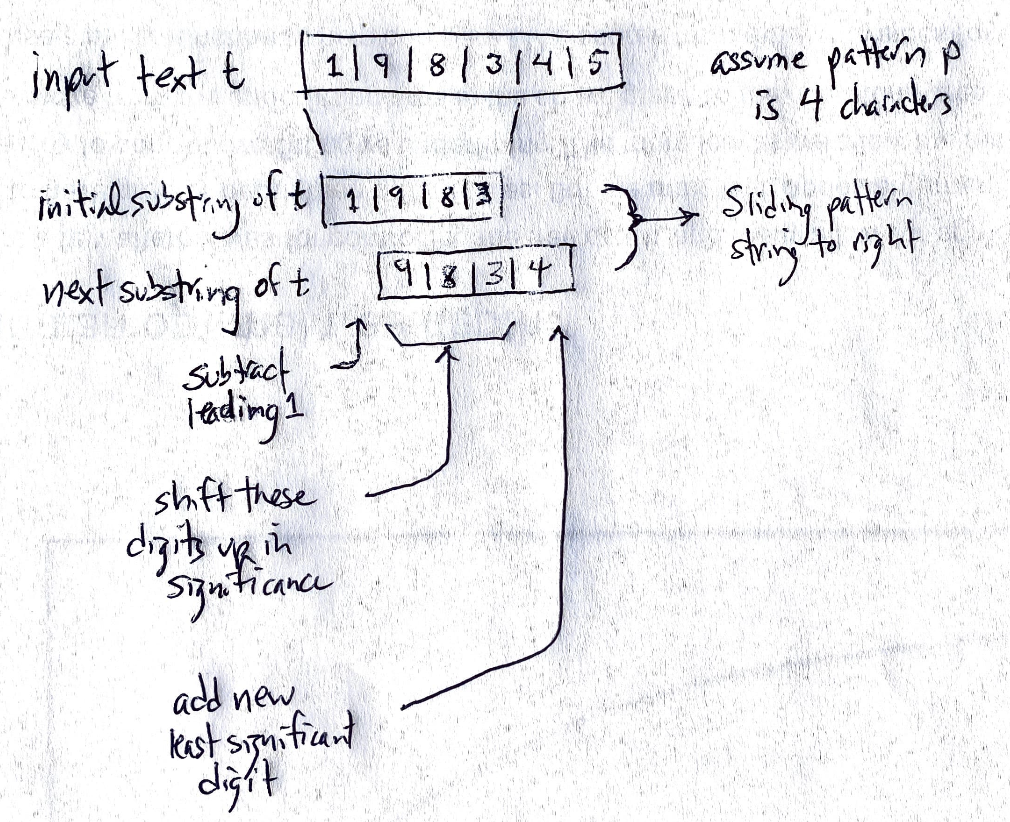 input text t
1|9|8|3|4|5
assume pattern p
is 4 characters
initial substring of t
1|9|8|3
next substring of t
9|8|3|4
Sliding pattern
string to right
subtract
leading 1
shift these
digits up in
significance
add new
least significant
digit